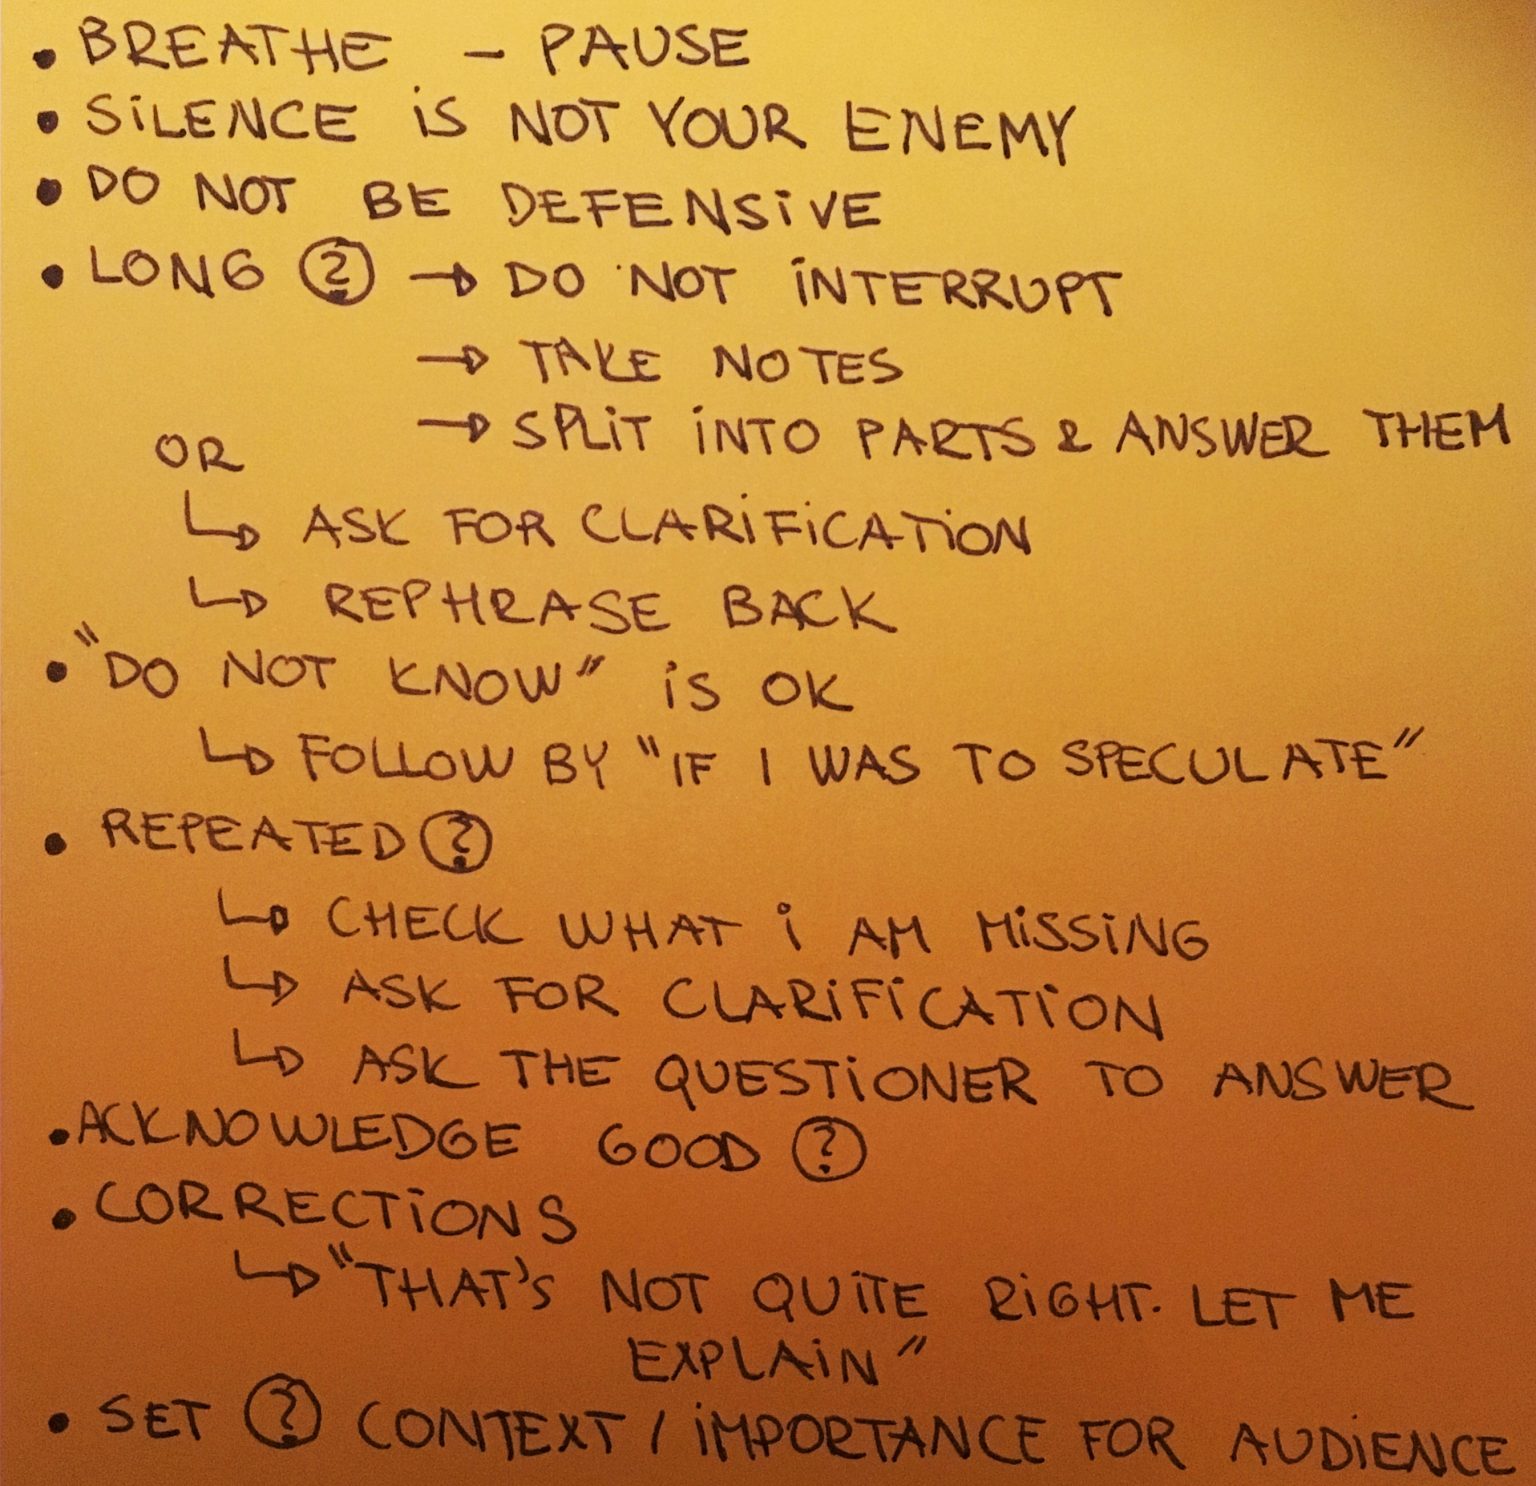 • BREATHE – PAUSE
• SiLENCE iS NOT YOUR ENEMY
• DO NOT BE DEFENSiVE
• LONG ? → DO NOT iNTERRUPT
→ TAKE NOTES
→ SPLiT iNTO PARTS & ANSWER THEM
OR
↳ ASK FOR CLARiFiCATiON
↳ REPHRASE BACK
• "DO NOT KNOW" iS OK
↳ FOLLOW BY "IF I WAS TO SPECULATE"
• REPEATED ?
↳ CHECK WHAT i AM MiSSiNG
↳ ASK FOR CLARiFiCATiON
↳ ASK THE QUESTiONER TO ANSWER
• ACKNOWLEDGE GOOD ?
• CORRECTiONS
↳ "THAT'S NOT QUiTE RiGHT. LET ME
EXPLAiN"
• SET ? CONTEXT / iMPORTANCE FOR AUDiENCE